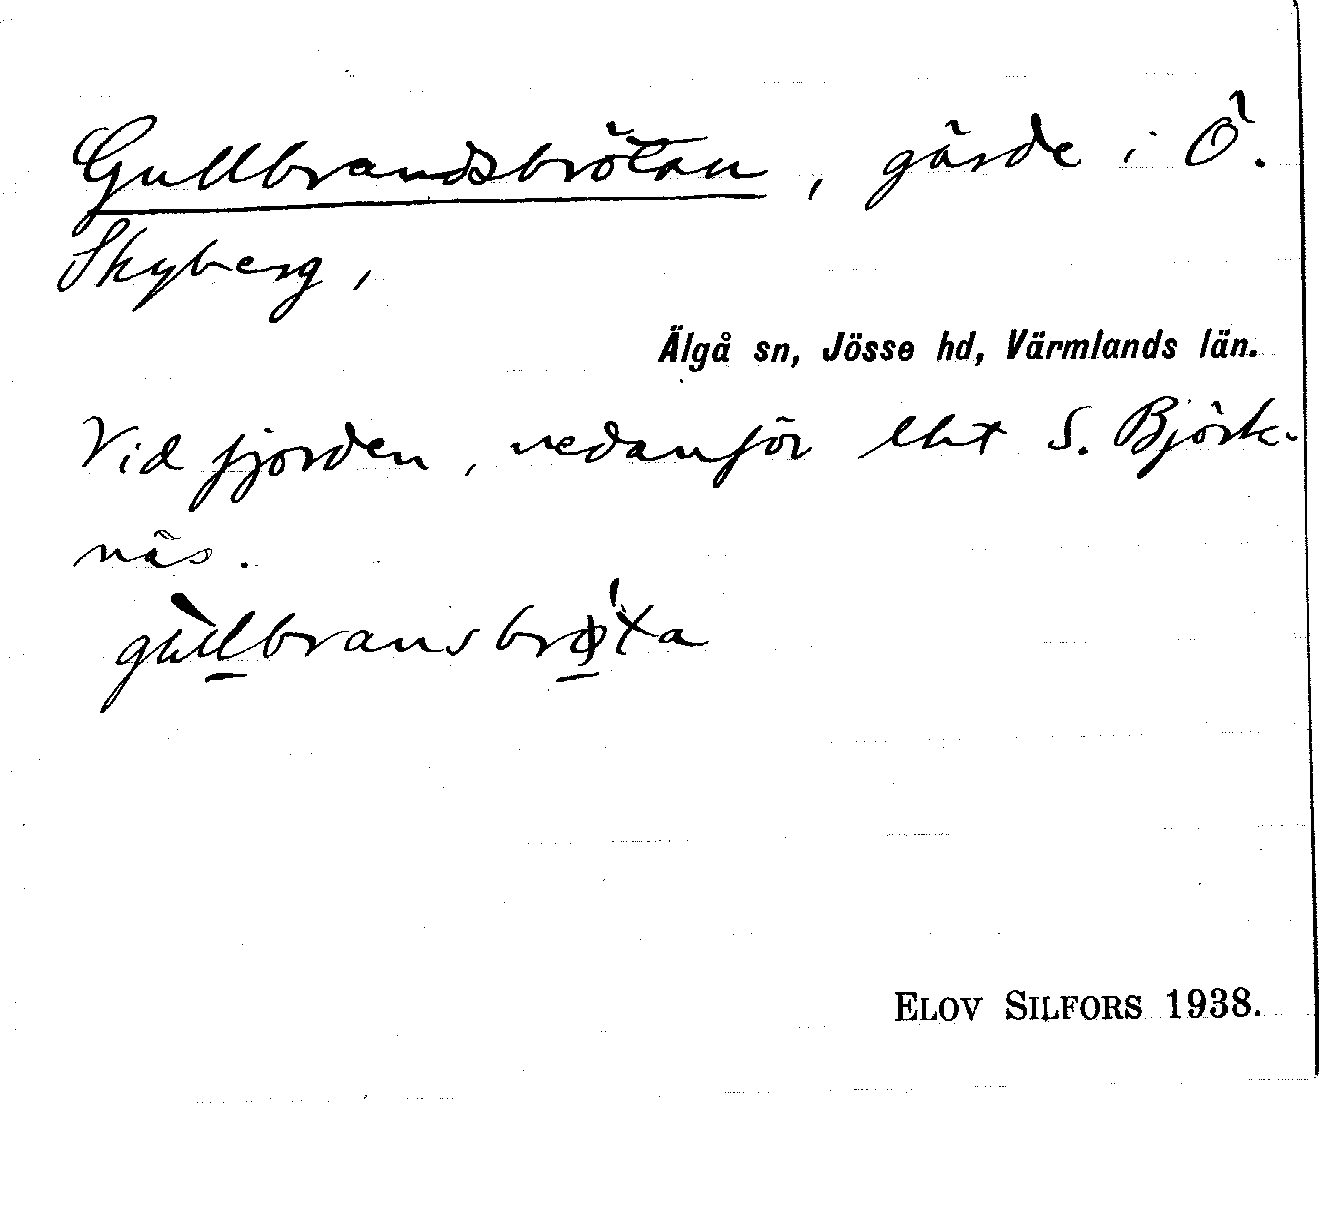 Gullbrandsbrötan, gärde i Ö.
Skyberg,
Älgå sn, Jösse hd, Värmlands län.
Vid fjorden, nedanför lht S. Björk-
näs.
gùllbransbrø̠̍ta
ELOV SILFORS 1938.